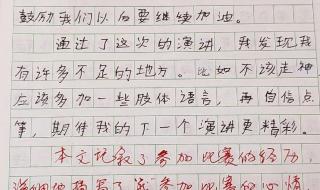 鼓励我们以后要继续加油。
通过了这次的演讲，我发现我
有许多不足的地方。比如不该走神
应该多加一些肢体语言，再自信点
等，期待我的下一个演讲更精彩。
本文记叙了参加比赛的经历，
详细地描写了我参加比赛的心情